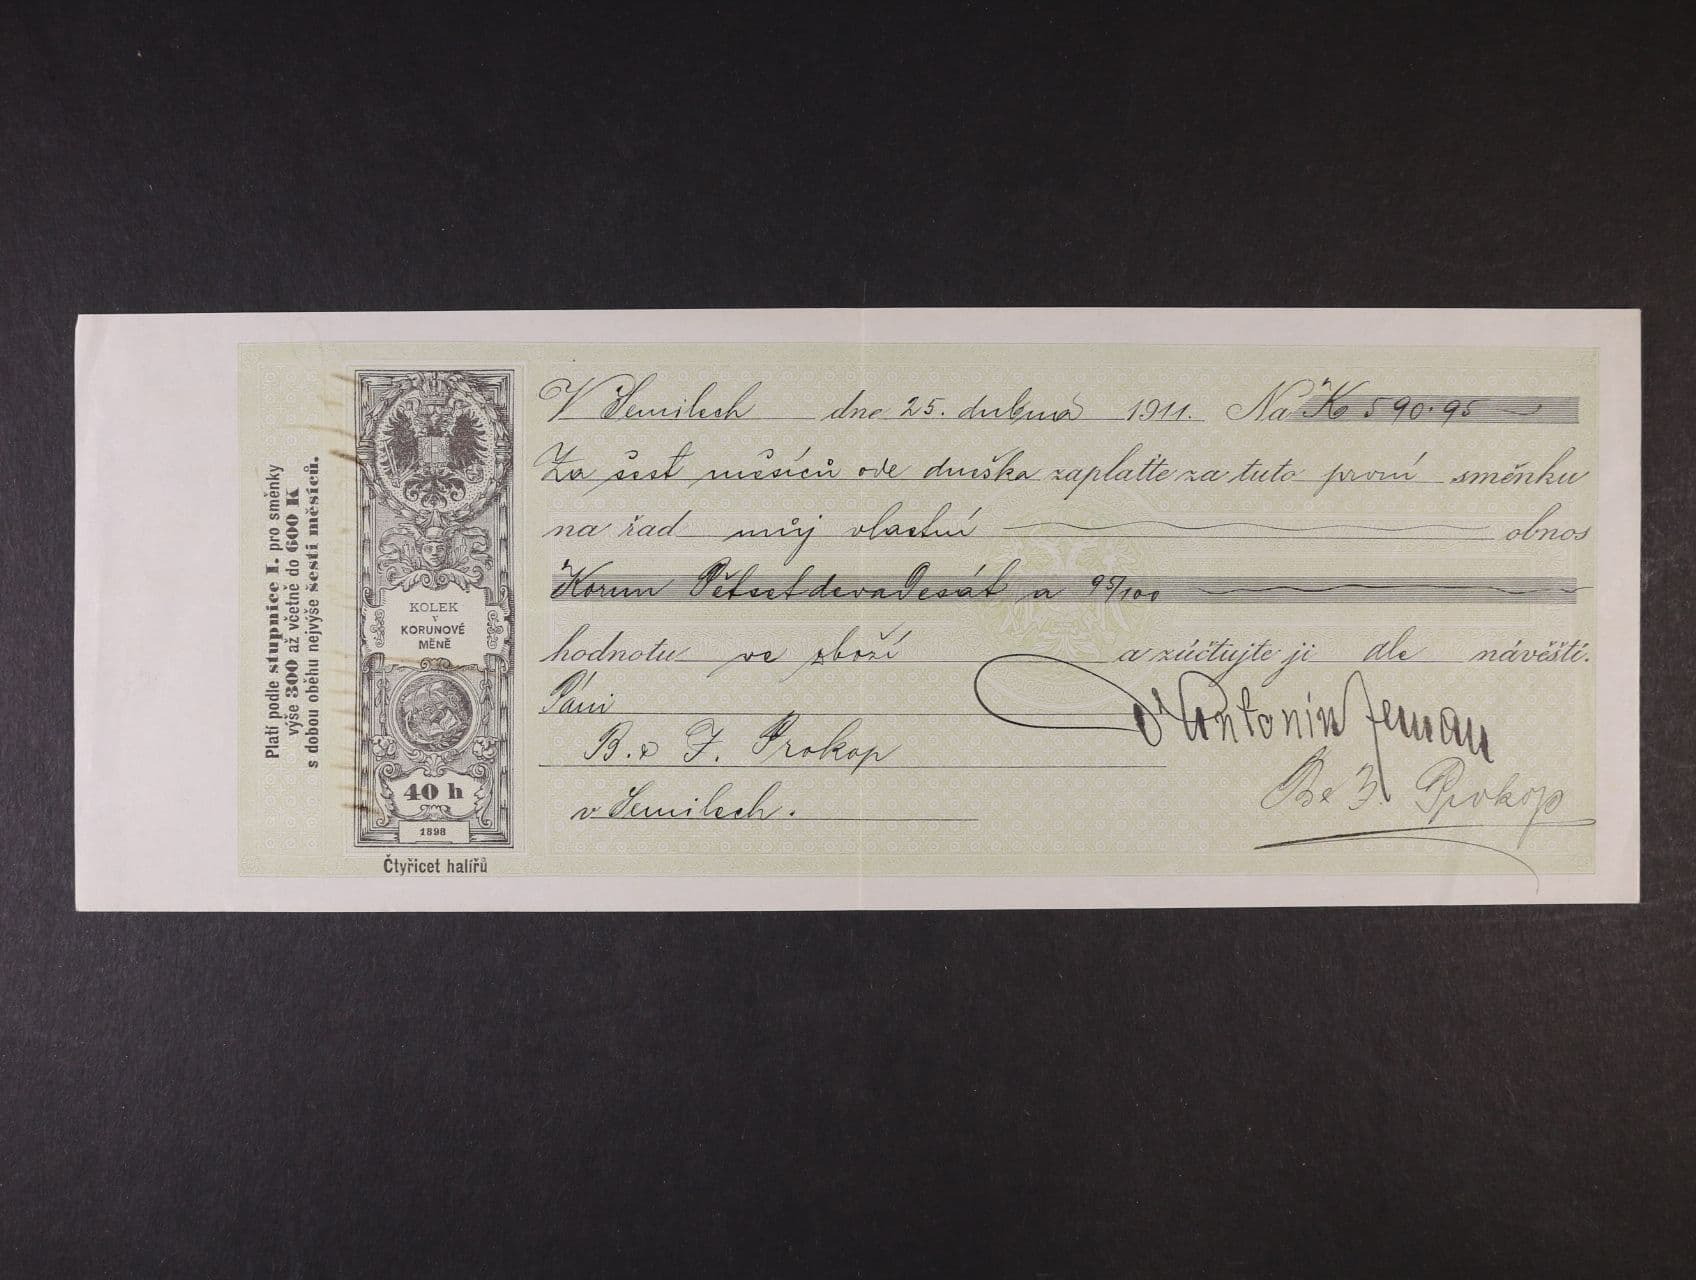 Platí podle stupnice I. pro směnky
výše 300 až včetně do 600 K
s dobou oběhu nejvýše šesti měsíců.
KOLEK
V
KORUNOVÉ
MĚNĚ
40 h
1898
Čtyřicet haléřů
V Semilech dne 25. dubna 1911. Na K 590·95
Za šest měsíců ode dneška zaplaťte za tuto první směnku
na řad můj vlastní obnos
Korun Pětsetdevadesát a 95/100
hodnotu ve zboží a zúčtujte ji dle návěští.
Páni
B. & F. Prokop
v Semilech.
Antonín Zeman
B & F. Prokop